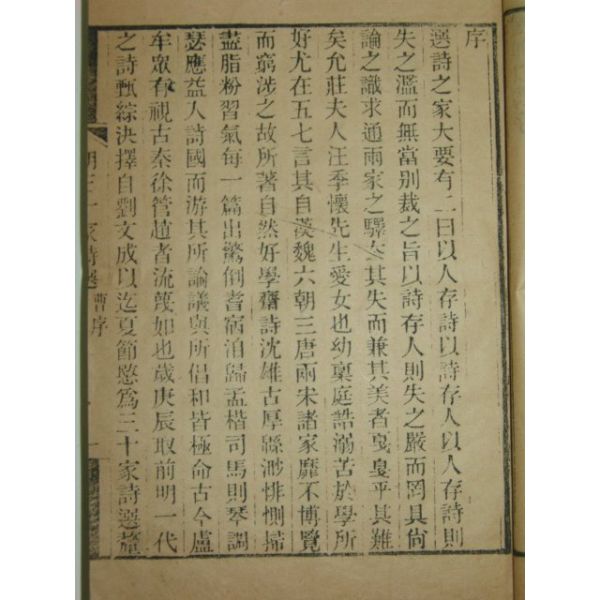 序
選詩之家大要有二曰以人存詩以詩存人以人存詩則
失之濫而無當別裁之旨以詩存人則失之嚴而罔具尙
論之識求通兩家之驛去其失而兼其美者戛戛乎其難
矣允莊夫人汪季懷先生愛女也幼稟庭誥溺苦於學所
好尤在五七言其自漢魏六朝三唐兩宋諸家靡不博覽
而窮涉之故所著自然好學齋詩沈雄古厚緜渺悱惻掃
盡脂粉習氣每一篇出驚倒耆宿洎歸孟楷司馬則琴調
瑟應益人詩國而游其所論議與所倡和皆極命古今盧
牟眾有視古秦徐管趙者流蔑如也歲庚辰取前明一代
之詩甄綜決擇自劉文成以迄夏節愍爲三十家詩選釐
明三十家詩選 曹序 一